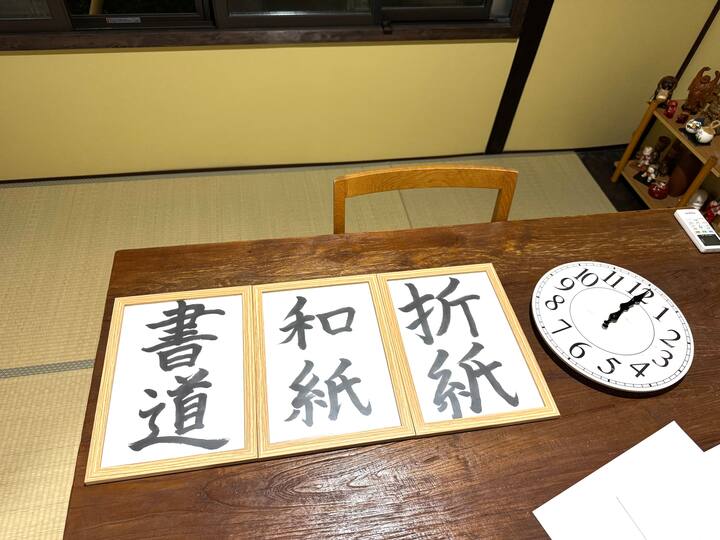 書道
和紙
折紙
12
1
2
3
4
5
6
7
8
9
10
11